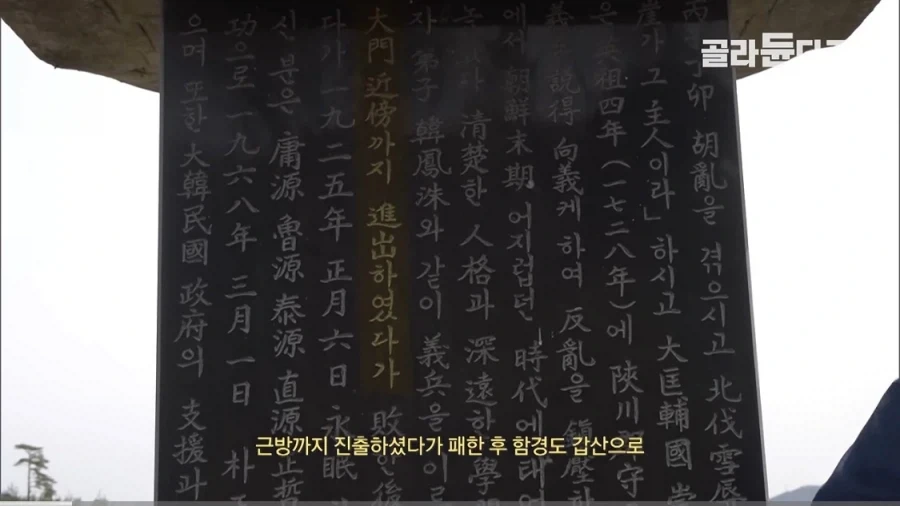 골라듄다큐
丁卯 胡亂을 겪으시고 北伐雪辱
崖가 그 主人이라」 하시고 大匡輔國 崇
은 英祖四年(一七二八年)에 陜川郡守
義로 說得 向義케 하여 反亂을 鎭壓하
에서 朝鮮末期 어지럽던 時代에 태여
清楚한 人格과 深遠하 學
자 弟子 韓鳳洙와 같이 義兵을 이르
大門近傍까지 進出하였다가 敗한 後
다가 一九二五年 正月六日 永眠
신 분은 庸源 魯源 泰源 直源 正哲
功으로 一九六八年 三月一日 朴
으며 또한 大韓民國 政府의 支援과
근방까지 진출하셨다가 패한 후 함경도 갑산으로